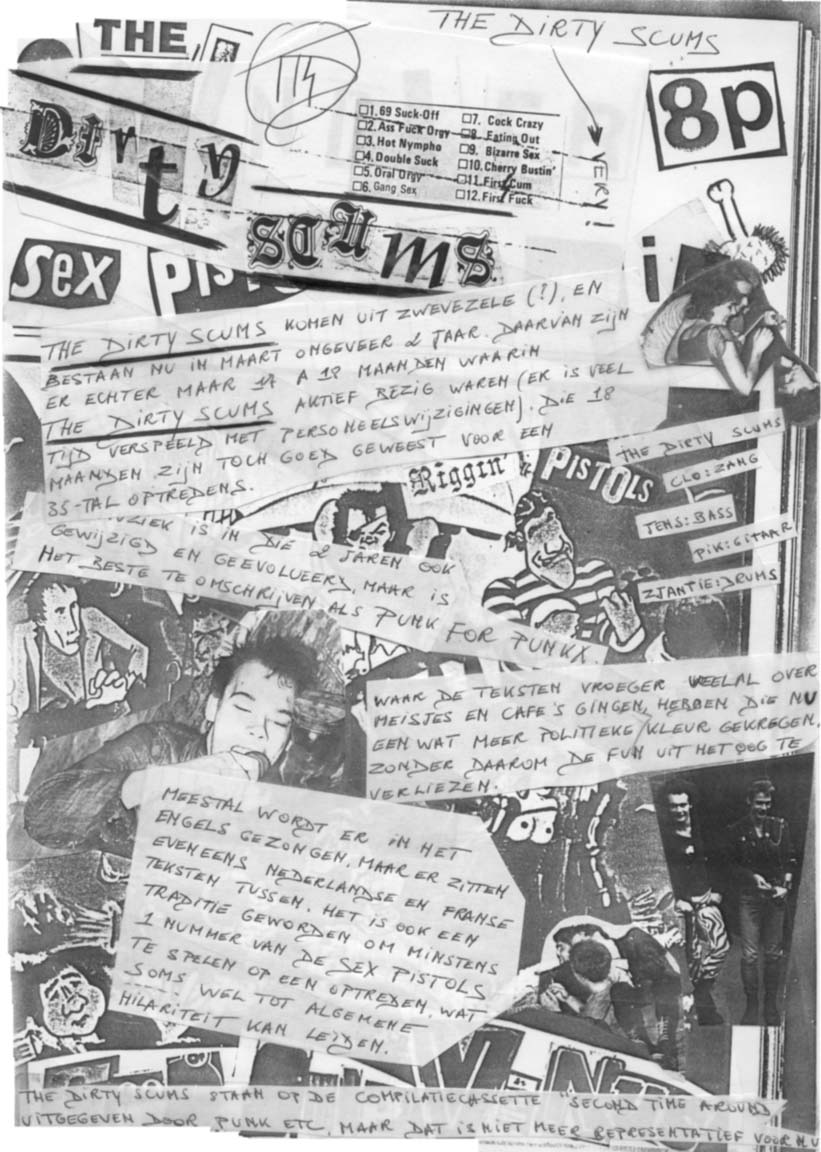 THE DIRTY SCUMS
THE
114
8p
Dirty
SCUMS
□1. 69 Suck-Off
□2. Ass Fuck Orgy
□3. Hot Nympho
□4. Double Suck
□5. Oral Orgy
□6. Gang Sex
□7. Cock Crazy
□8. Eating Out
□9. Bizarre Sex
□10. Cherry Bustin'
□11. First Cum
□12. First Fuck
VERY!
SEX PIS
THE DIRTY SCUMS KOMEN UIT ZWEVEZELE (!), EN
BESTAAN NU IN MAART ONGEVEER 2 JAAR. DAARVAN ZIJN
ER ECHTER MAAR 17 A 18 MAANDEN WAARIN
THE DIRTY SCUMS AKTIEF BEZIG WAREN (ER IS VEEL
TIJD VERSPEELD MET PERSONEELSWIJZIGINGEN). DIE 18
MAANDEN ZIJN TOCH GOED GEWEEST VOOR EEN
35-TAL OPTREDENS.
MUZIEK IS IN DIE 2 JAREN OOK
GEWIJZIGD EN GEEVOLUEERD, MAAR IS
HET BESTE TE OMSCHRIJVEN ALS PUNK FOR PUNKX.
Riggin'
PISTOLS
THE DIRTY SCUMS
CLO: ZANG
JENS: BASS
PIK: GITAAR
ZJANTIE: DRUMS
WAAR DE TEKSTEN VROEGER VEELAL OVER
MEISJES EN CAFE'S GINGEN, HEBBEN DIE NU
EEN WAT MEER POLITIEKE KLEUR GEKREGEN,
ZONDER DAAROM DE FUN UIT HET OOG TE
VERLIEZEN.
MEESTAL WORDT ER IN HET
ENGELS GEZONGEN, MAAR ER ZITTEN
EVENEENS NEDERLANDSE EN FRANSE
TEKSTEN TUSSEN. HET IS OOK EEN
TRADITIE GEWORDEN OM MINSTENS
1 NUMMER VAN DE SEX PISTOLS
TE SPELEN OP EEN OPTREDEN, WAT
SOMS WEL TOT ALGEMENE
HILARITEIT KAN LEIDEN.
THE DIRTY SCUMS STAAN OP DE COMPILATIECASSETTE "SECOND TIME AROUND"
UITGEGEVEN DOOR PUNK ETC, MAAR DAT IS NIET MEER REPRESENTATIEF VOOR NU